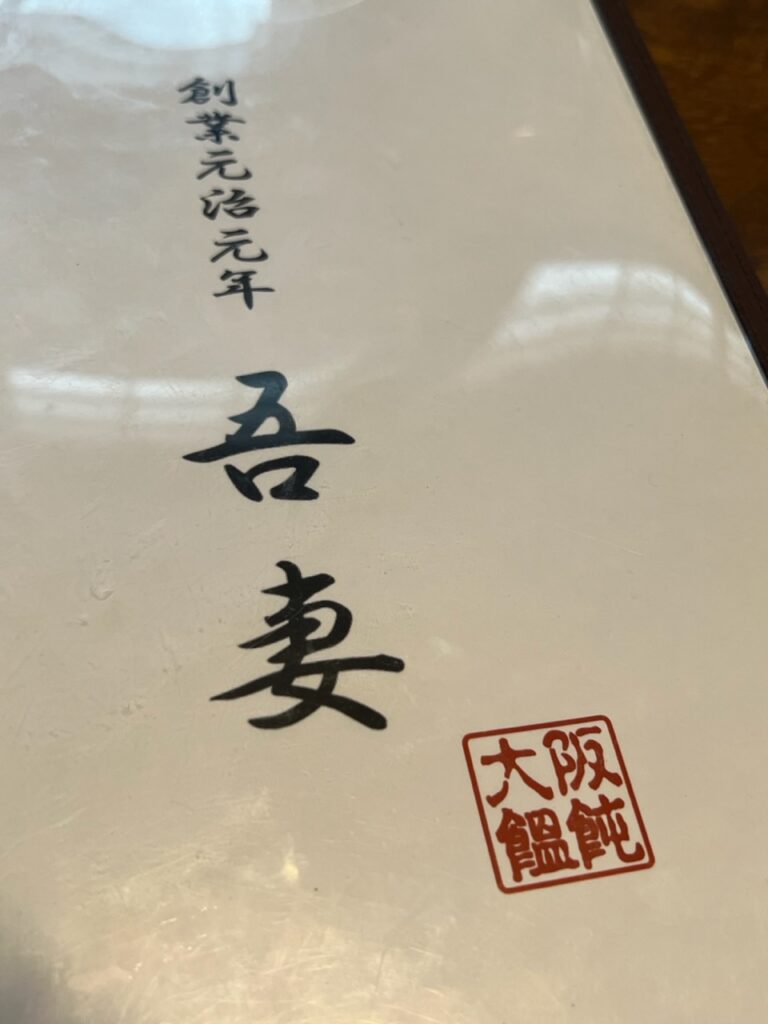 創業元治元年
吾妻
大阪
饂飩